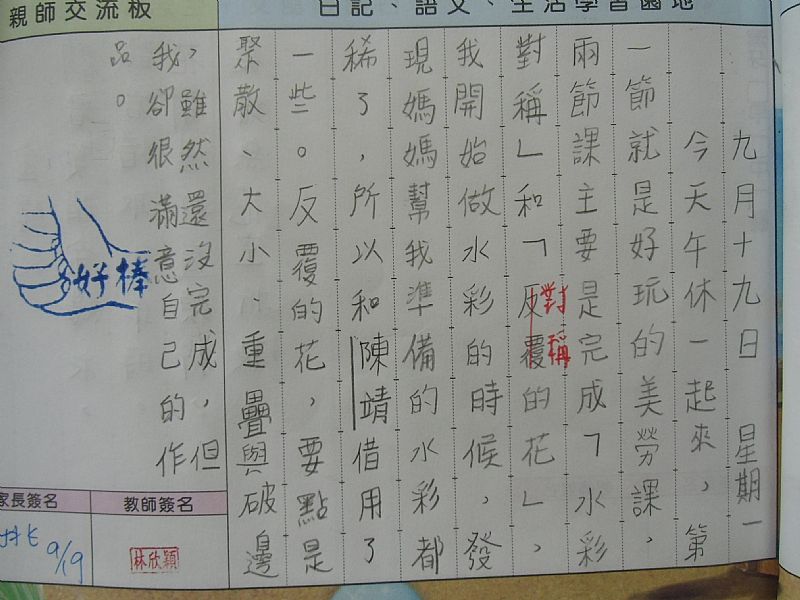 親師交流板
日記、語文、生活學習園地
九月十九日 星期一
今天午休一起來,第
一節就是好玩的美勞課,
兩節課主要是完成「水彩
對稱」和「反覆的花」,
對稱
我開始做水彩的時候,發
現媽媽幫我準備的水彩都
稀了,所以和陳靖借用了
一些。反覆的花,要點是
聚散、大小、重疊與破邊
,雖然還沒完成,但
我卻很滿意自己的作
品。
好棒
家長簽名
教師簽名
9/19
林欣穎